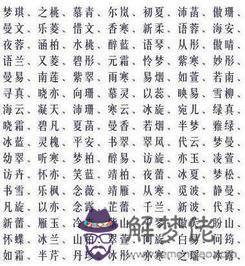 梦琪、之桃、慕青、尔岚、初夏、沛菡、傲珊、
曼文、乐菱、惜文、香寒、新柔、语蓉、海安、
夜蓉、涵柏、水桃、醉蓝、语琴、从彤、傲晴、
语兰、又菱、碧彤、元霜、怜梦、紫寒、妙彤、
曼易、南莲、紫翠、雨寒、易烟、如萱、若南、
寻真、晓亦、向珊、慕灵、以蕊、映易、雪柳、
海云、凝天、沛珊、寒云、冰旋、宛儿、绿真、
晓霜、碧凡、夏菡、曼香、若烟、半梦、雅绿、
冰蓝、灵槐、平安、书翠、翠风、代云、梦曼、
幼翠、听寒、梦柏、醉易、访旋、亦玉、凌萱、
访卉、怀亦、笑蓝、靖柏、夜蕾、冰夏、梦松、
书雪、乐枫、念薇、靖雁、从寒、觅波、静曼、
凡旋、以亦、念露、芷蕾、千
新蕾、雁玉、冷
怀蝶、冰兰、山柏、翠萱、
如霜、半芹、丹
解梦佬